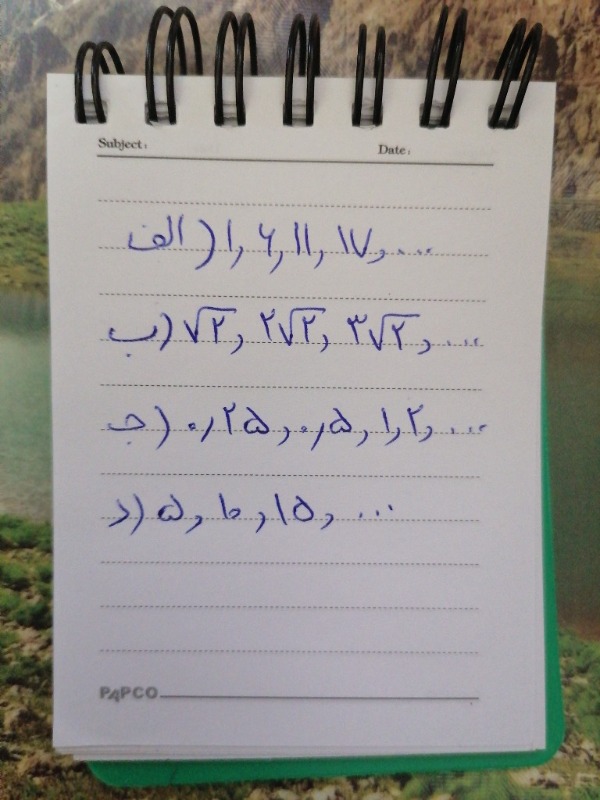 Subject: Date:
الف) ۱, ۶, ۱۱, ۱۷, ...
ب) √۲, ۲√۲, ۳√۲, ...
ج) ۰٫۲۵, ۰٫۵, ۱, ۲, ...
د) ۵, ۱۰, ۱۵, ...
PAPCO